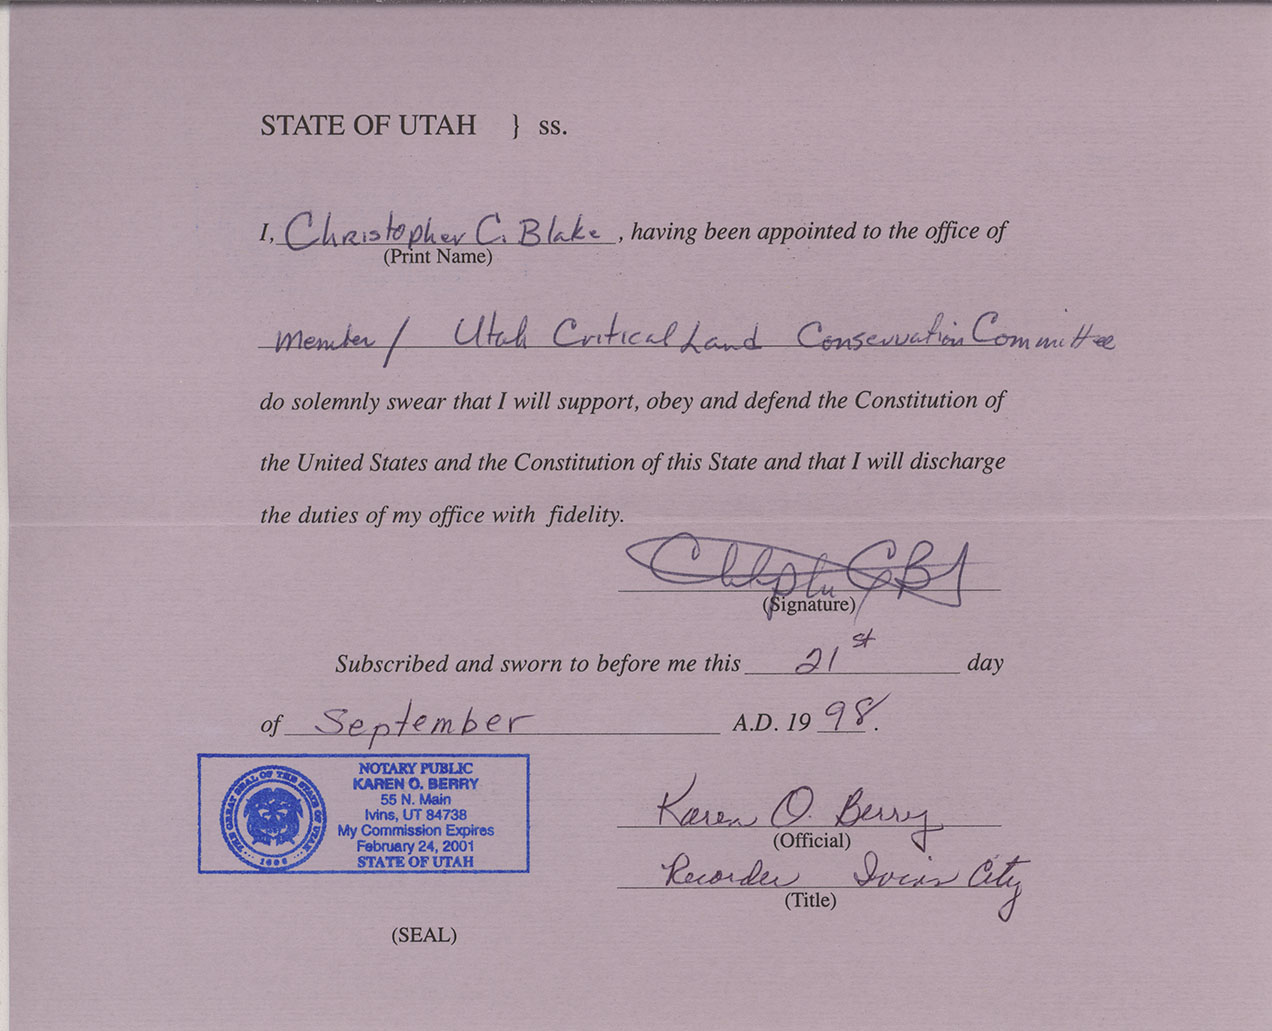 STATE OF UTAH } ss.
I, Christopher C. Blake, having been appointed to the office of
(Print Name)
Member/ Utah Critical Land Conservation Committee
do solemnly swear that I will support, obey and defend the Constitution of
the United States and the Constitution of this State and that I will discharge
the duties of my office with fidelity.
(Signature)
Subscribed and sworn to before me this 21st day
of September A.D. 1998.
THE GREAT SEAL OF THE STATE OF UTAH
1896
NOTARY PUBLIC
KAREN O. BERRY
55 N. Main
Ivins, UT 84738
My Commission Expires
February 24, 2001
STATE OF UTAH
Karen O. Berry
(Official)
Recorder Ivins City
(Title)
(SEAL)